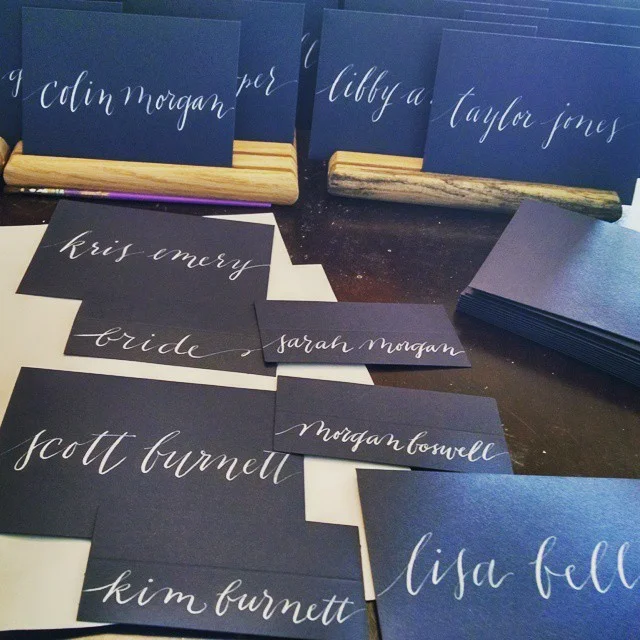 colin morgan
libby a
taylor jones
kris emery
bride
sarah morgan
scott burnett
morgan boswell
kim burnett
lisa bell